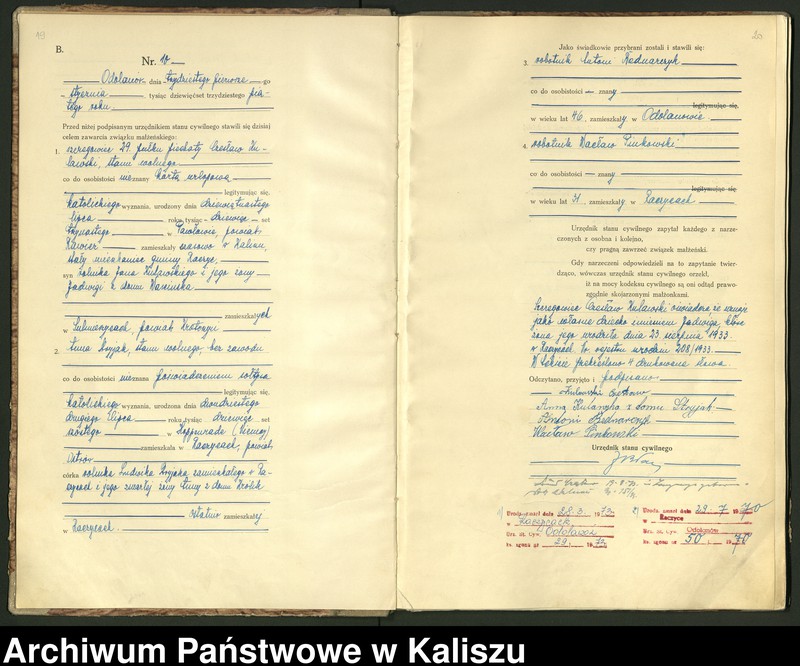 19
B.
Nr. 10
Odolanów dnia trzydziestego pierwszego
stycznia tysiąc dziewięćset trzydziestego piątego roku
Przed niżej podpisanym urzędnikiem stanu cywilnego stawili się dzisiaj
celem zawarcia związku małżeńskiego:
1. szeregowiec 29. pułku piechoty Czesław
stanu wolnego
co do osobistości nieznany Karta urlopowa
legitymując się,
katolickiego wyznania, urodzony dnia dziewiętnastego
lipca roku tysiąc dziewięć set
trzynastego w powiat
zamieszkały czasowo w Kaliszu,
stały mieszkaniec gminy
syn rolnika Jana i jego żony
Jadwigi z domu
zamieszkałych
w Sulmierzycach, powiat Krotoszyn
2. Anna Stryjak, stanu wolnego, bez zawodu
co do osobistości nieznana poświadczeniem sołtysa
legitymując się,
katolickiego wyznania, urodzona dnia dwudziestego
drugiego lipca roku tysiąc dziewięć set
szóstego w (Niemcy)
zamieszkała w Raczycach, powiat
Ostrów
córka rolnika Ludwika Stryjaka zamieszkałego w Raczycach
i jego zmarłej żony Anny z domu
ostatnio zamieszkały
w Raczycach.
20
Jako świadkowie przybrani zostali i stawili się:
3. robotnik Antoni Bednarczyk
co do osobistości — znany
legitymując się,
w wieku lat 46, zamieszkały w Odolanowie
4. robotnik Wacław Pinkowski
co do osobistości — znany
legitymując się,
w wieku lat zamieszkały w Raczycach
Urzędnik stanu cywilnego zapytał każdego z narze-
czonych z osobna i kolejno,
czy pragną zawrzeć związek małżeński.
Gdy narzeczeni odpowiedzieli na to zapytanie twier-
dząco, wówczas urzędnik stanu cywilnego orzekł,
iż na mocy kodeksu cywilnego są oni odtąd prawo-
zgodnie skojarzonymi małżonkami.
Szeregowiec Czesław oświadcza, że uznaje
jako własne dziecko imieniem Jadwiga, które
żona jego urodziła dnia 23. sierpnia 1933.
w Raczycach, Nr. rejestru urodzin 208/1933.
W tekście przekreślono 4 drukowane słowa.
Odczytano, przyjęto i podpisano
Czesław
Anna z domu Stryjak
Antoni Bednarczyk
Wacław Pinkowski
Urzędnik stanu cywilnego
1) dnia 28.3. 1972
w Raczycach
Urz. St. Cyw. Odolanów
Nr. 29. 1972
2) dnia 29.7 1970
w Raczyce
Urz. St. Cyw. Odolanów
Nr. 50 1970
Archiwum Państwowe w Kaliszu